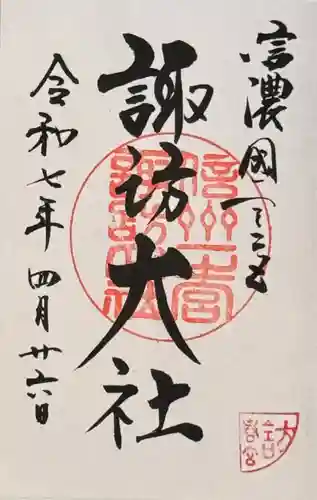 信濃國一之宮
諏訪大社
令和七年四月廿六日
信州一宮
諏訪大社